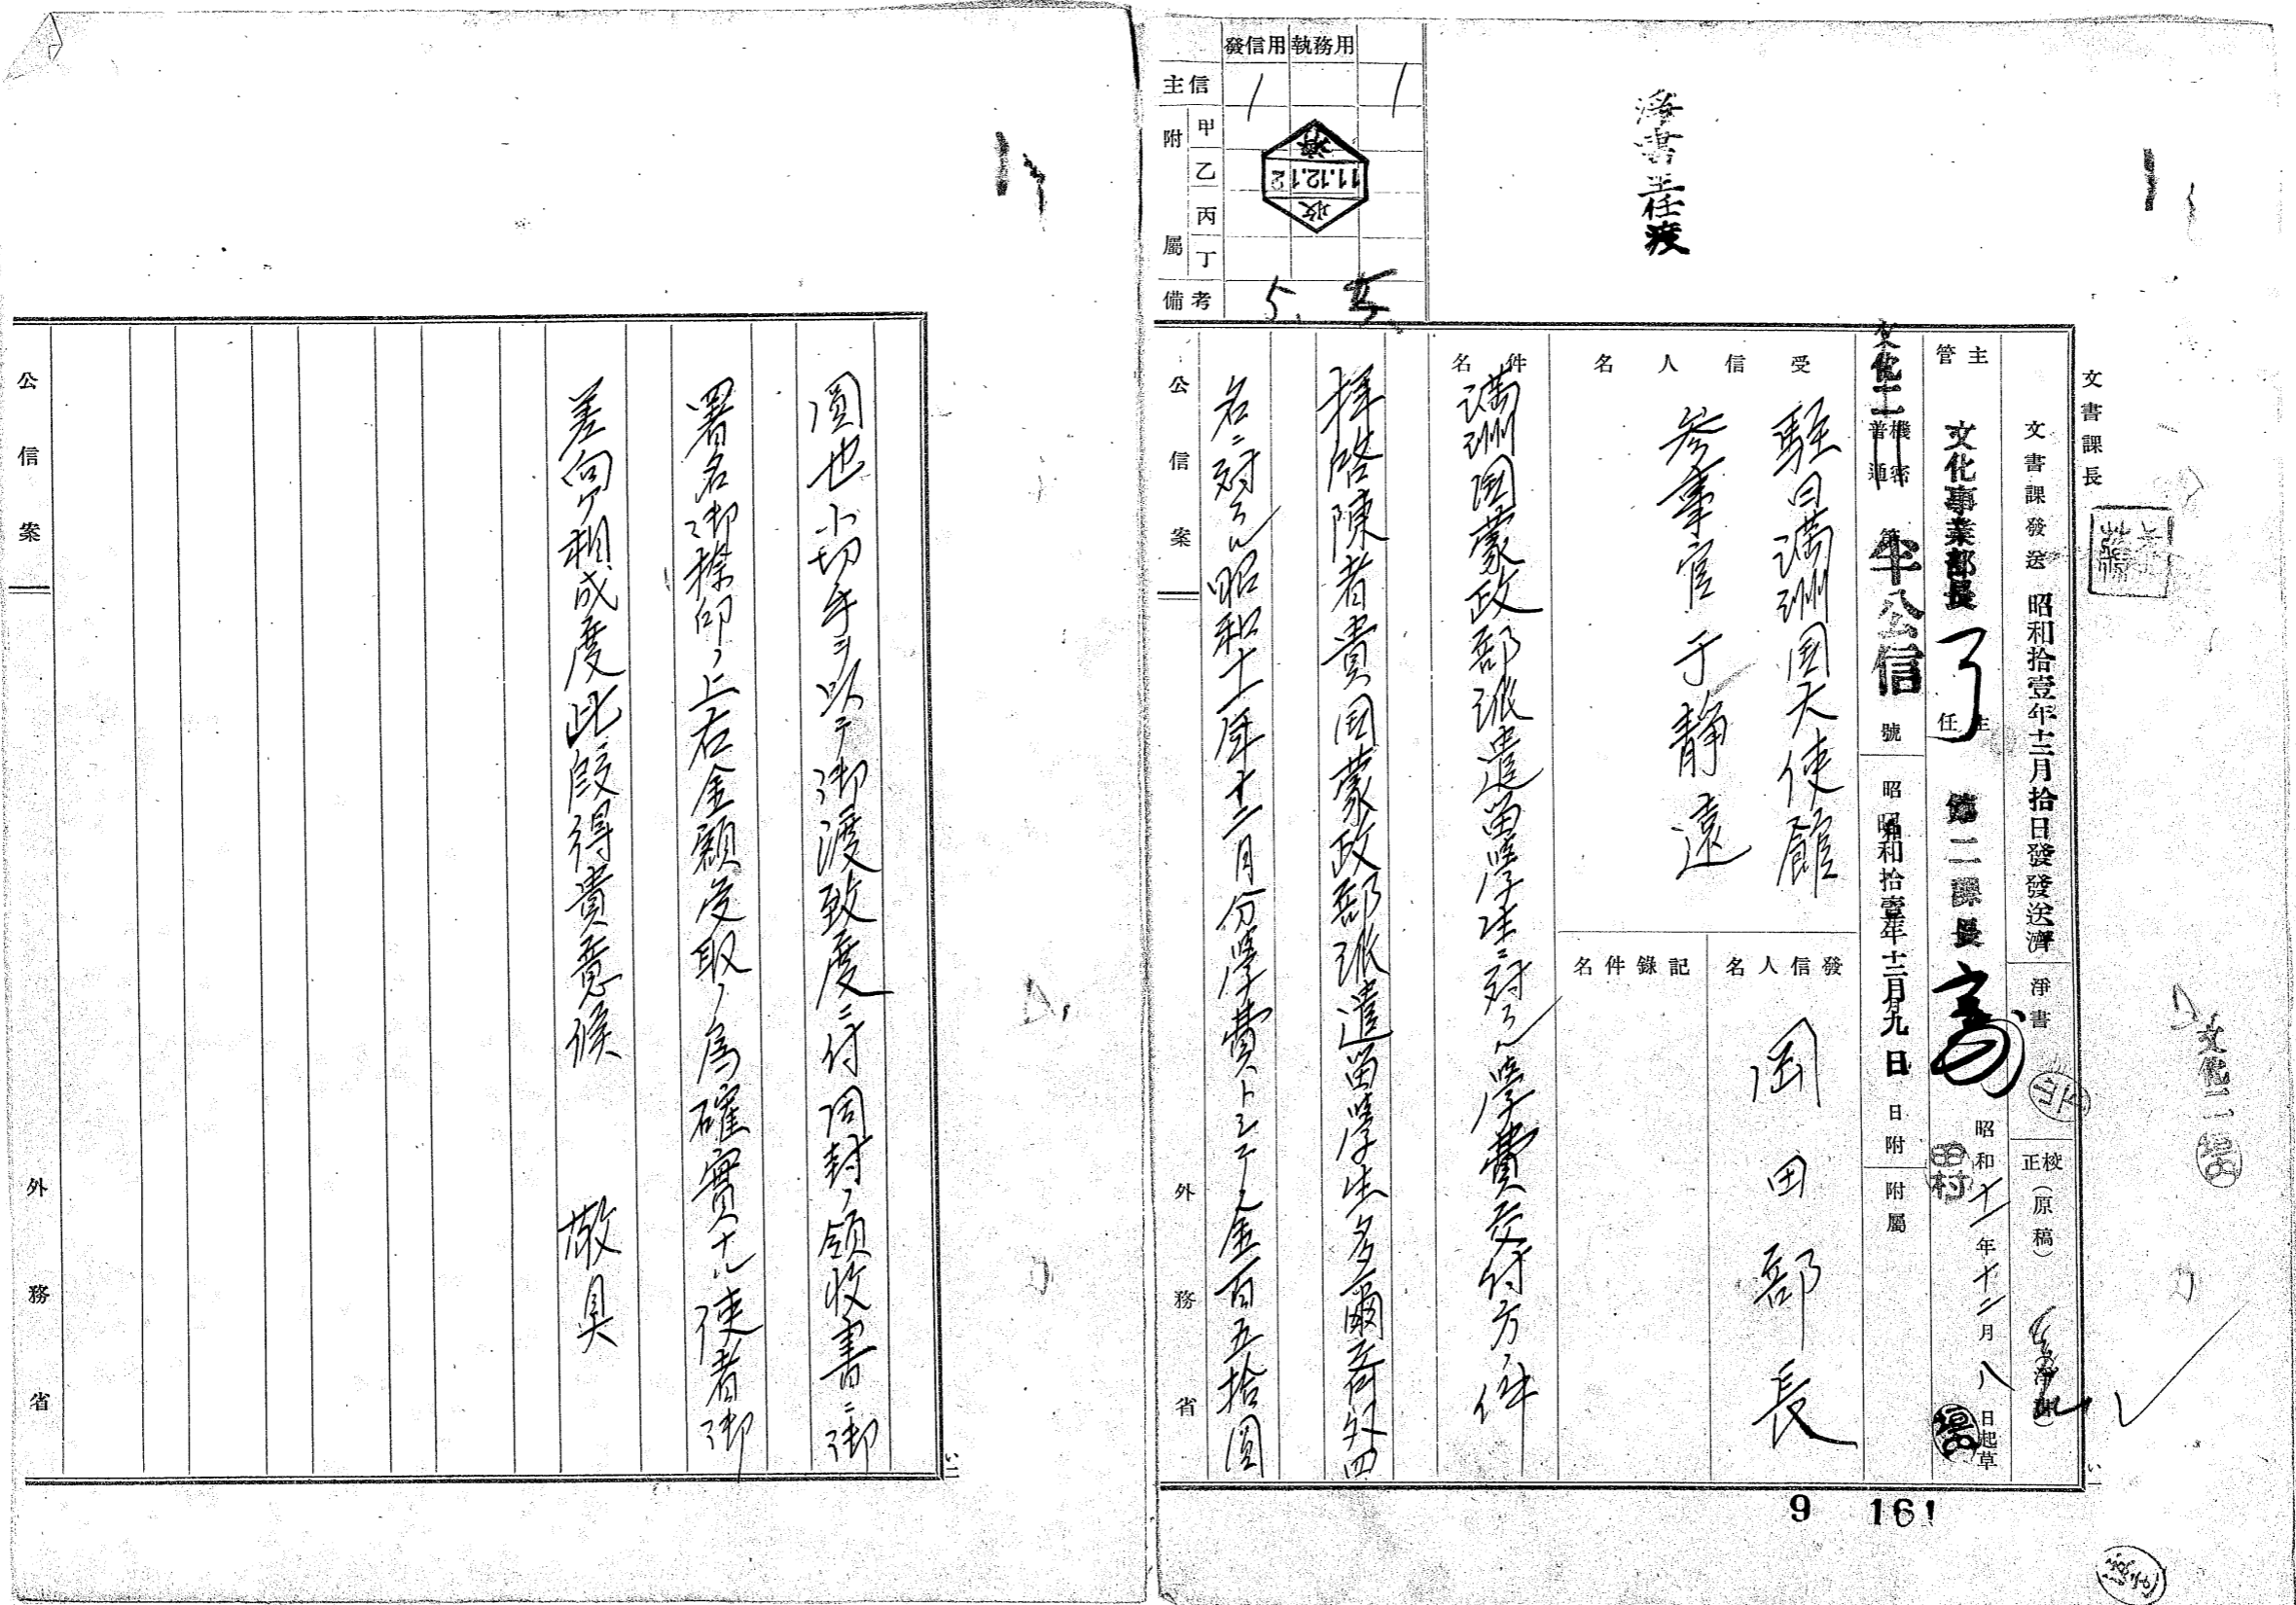 發信用
執務用
主信
附屬
甲
乙
丙
丁
備考
1
1
11.12.12
5.
淨書主任渡
文書課長
文書課發送
昭和拾壹年十二月拾日發發送濟
淨書
校正(原稿)
主管
文化事業部長
主任
第二課長
昭和十一年十二月八日起草
田村
文化二
機密
普通
第
半公信
號
昭和拾壹年十二月九日
日附
附屬
受信人名
駐日満洲国大使館
參事官于靜遠
發信人名
岡田部長
記錄件名
件名
満洲国蒙政部派遣留學生ニ対スル學費交付方ノ件
拝啓陳者貴国蒙政部派遣留學生多爾
名ニ対スル昭和十一年十二月分學費トシテ金百五拾圓
公信案
外務省
9
161
文化二
圓也小切手ヲ以テ御渡致度ニ付同封ノ領收書ニ御
署名御捺印ノ上右金額受取ノ為確實ナル使者御
差向ケ相成度此段得貴意候 敬具
公信案
外務省